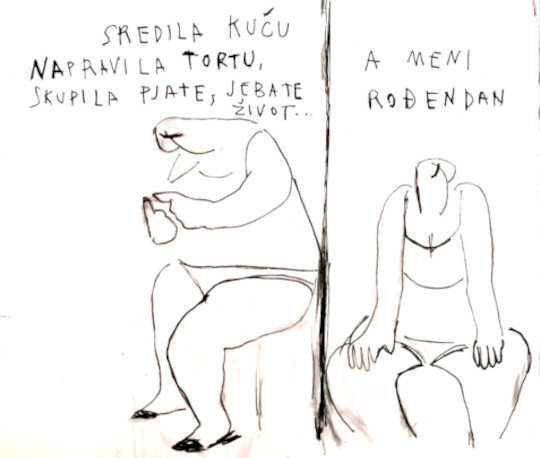 SREDILA KUĆU
NAPRAVILA TORTU,
SKUPILA PJATE, JEBATE
ŽIVOT...
A MENI
ROĐENDAN